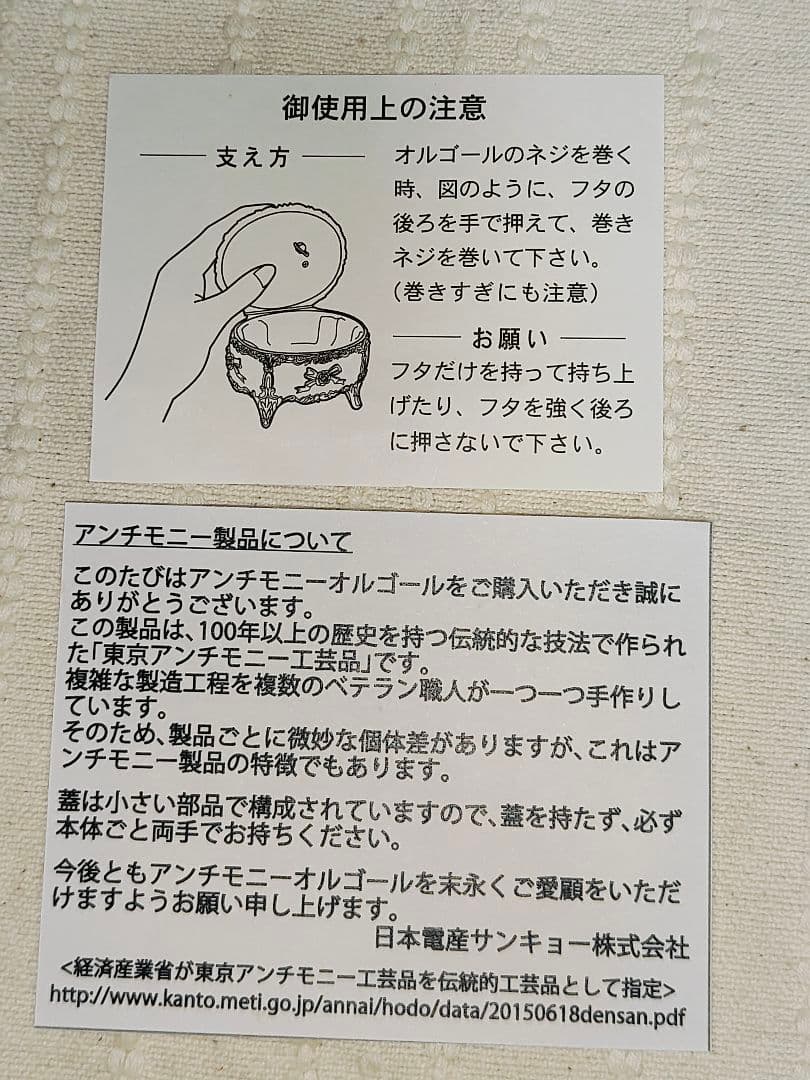 御使用上の注意
支え方
オルゴールのネジを巻く
時、図のように、フタの
後ろを手で押えて、巻き
ネジを巻いて下さい。
（巻きすぎにも注意）
お願い
フタだけを持って持ち上
げたり、フタを強く後ろ
に押さないで下さい。
アンチモニー製品について
このたびはアンチモニーオルゴールをご購入いただき誠に
ありがとうございます。
この製品は、100年以上の歴史を持つ伝統的な技法で作られ
た「東京アンチモニー工芸品」です。
複雑な製造工程を複数のベテラン職人が一つ一つ手作りし
ています。
そのため、製品ごとに微妙な個体差がありますが、これはア
ンチモニー製品の特徴でもあります。
蓋は小さい部品で構成されていますので、蓋を持たず、必ず
本体ごと両手でお持ちください。
今後ともアンチモニーオルゴールを末永くご愛顧をいただ
けますようお願い申し上げます。
日本電産サンキョー株式会社
<経済産業省が東京アンチモニー工芸品を伝統的工芸品として指定>
http://www.kanto.meti.go.jp/annai/hodo/data/20150618densan.pdf